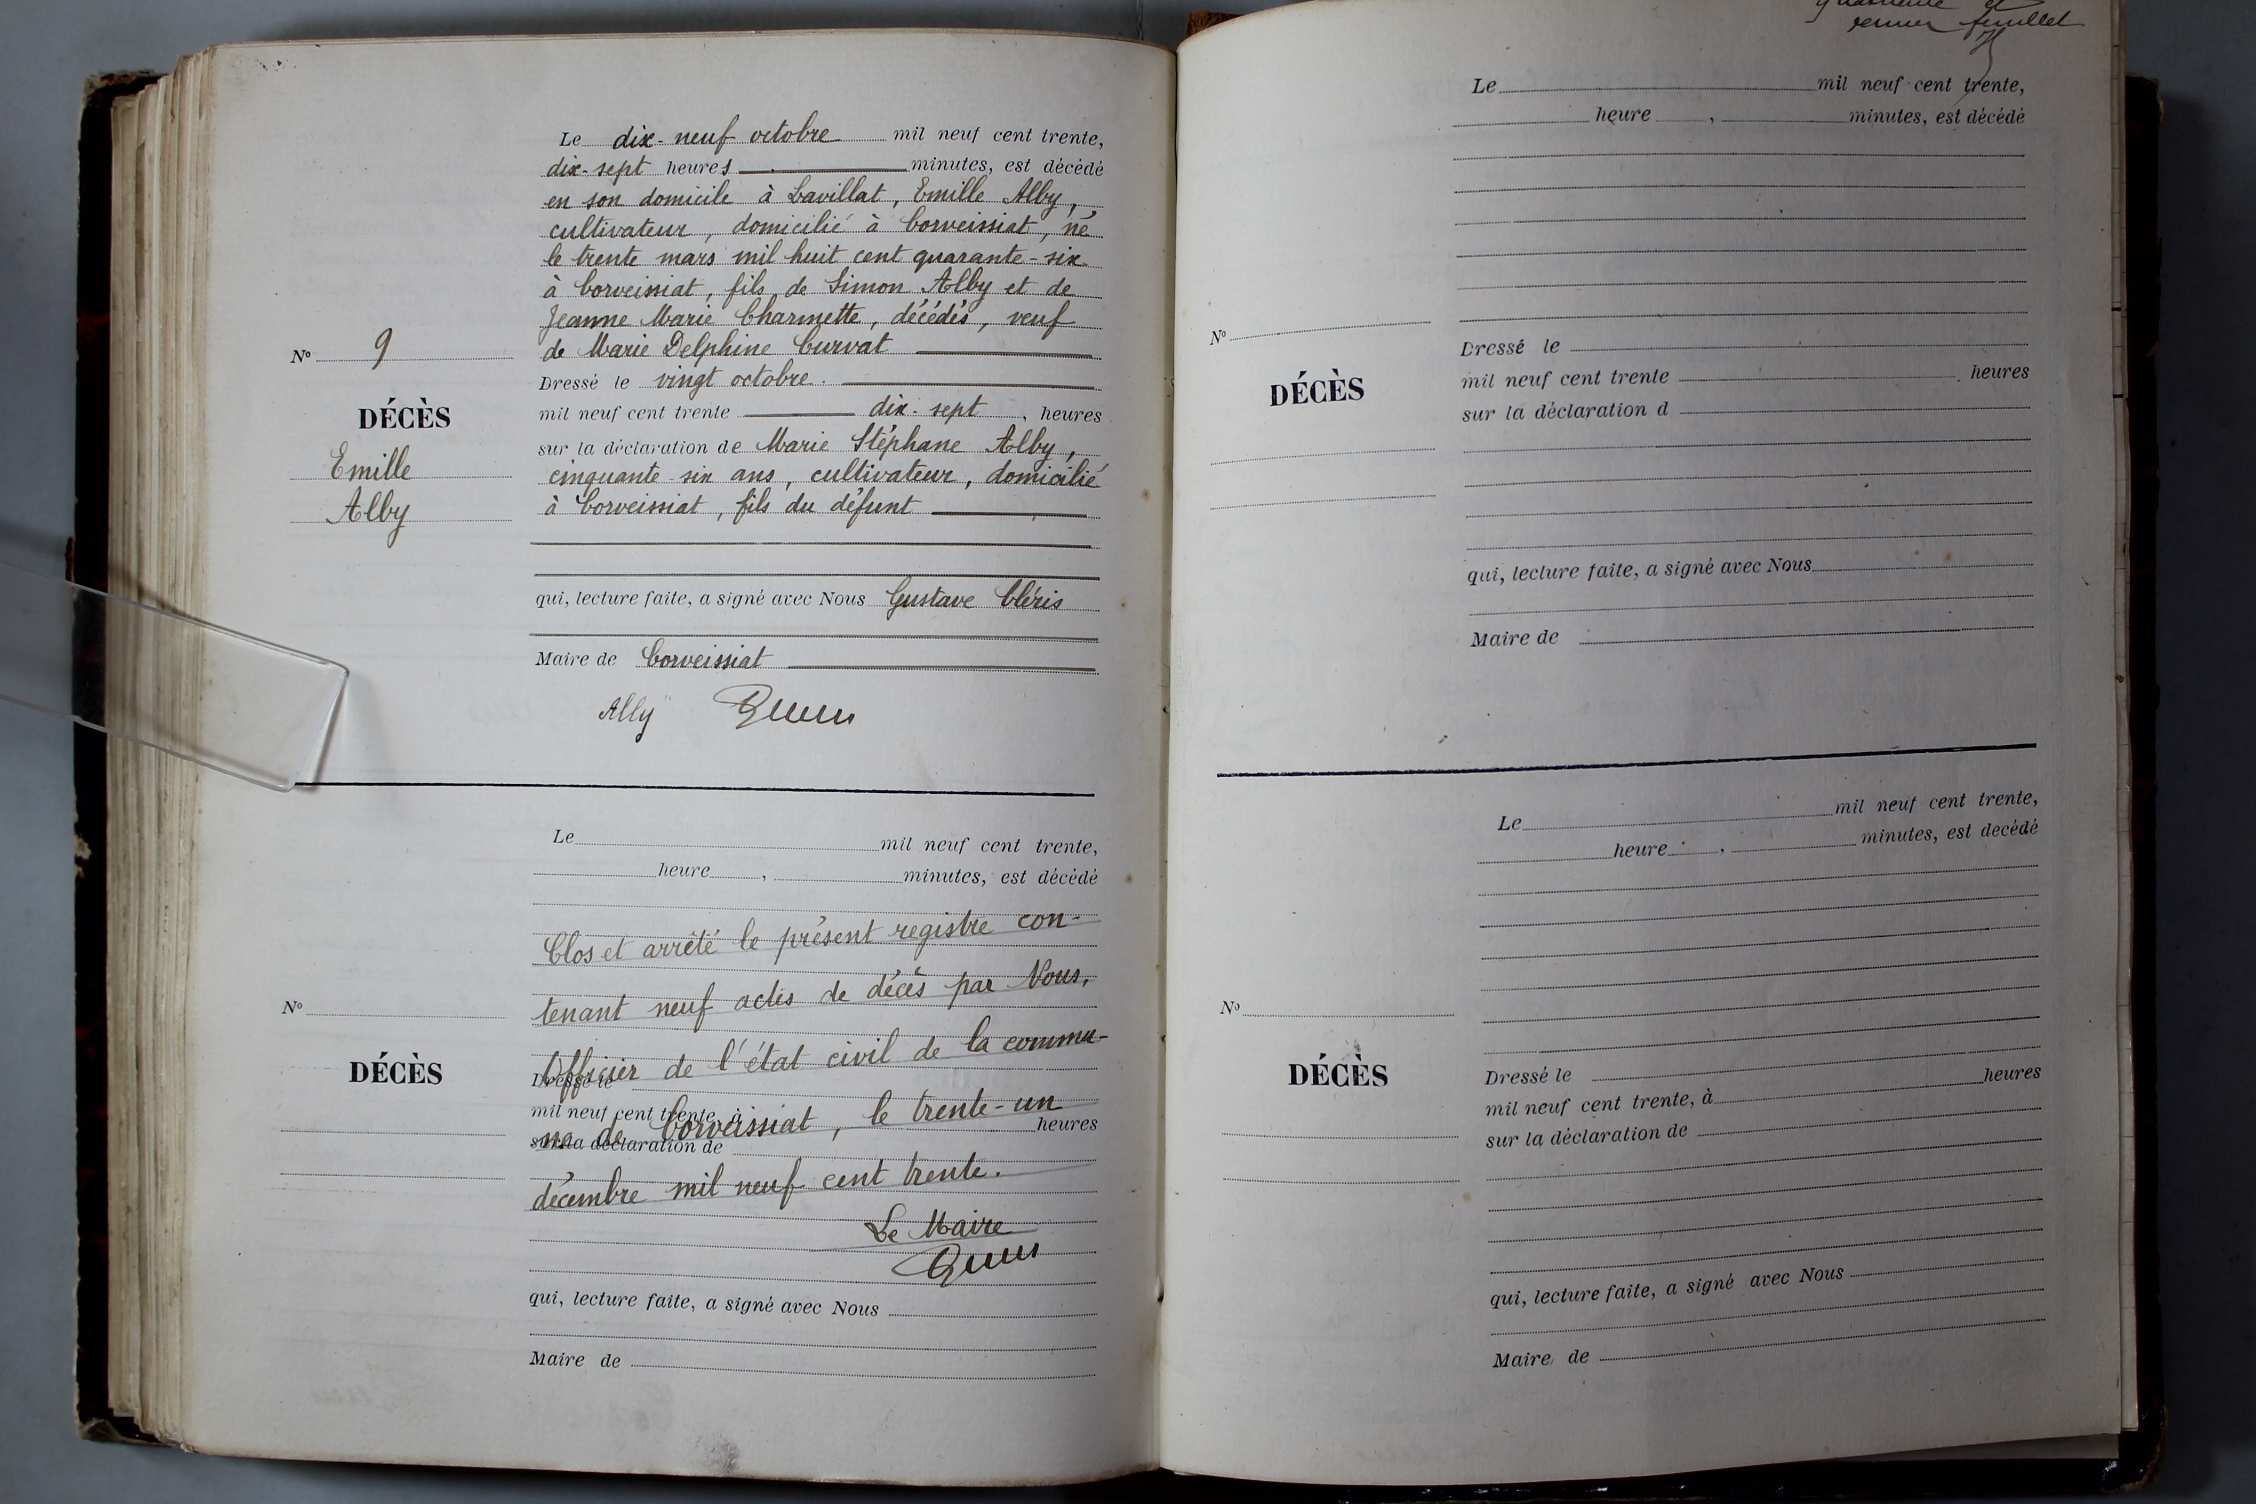 Le dix-neuf octobre mil neuf cent trente,
dix-sept heures minutes, est décédé
en son domicile à Lavillat, Emille Alby,
cultivateur, domicilié à Corveissiat, né
le trente mars mil huit cent quarante-six
à Corveissiat, fils de Simon Alby et de
Jeanne Marie Charmette, décédés, veuf
de Marie Delphine Curvat
Nº 9
DÉCÈS
Emille
Alby
Dressé le vingt octobre.
mil neuf cent trente dix-sept, heures
sur la déclaration de Marie Stéphane Alby,
cinquante-six ans, cultivateur, domicilié
à Corveissiat, fils du défunt
qui, lecture faite, a signé avec Nous Gustave Cléris
Maire de Corveissiat
Alby
Le mil neuf cent trente,
heure , minutes, est décédé
Clos et arrêté le présent registre con-
tenant neuf actes de décès par Nous,
Officier de l'état civil de la commu-
ne de Corveissiat, le trente-un
décembre mil neuf cent trente.
Le Maire
Nº
DÉCÈS
Dressé le
mil neuf cent trente, à heures
sur la déclaration de
qui, lecture faite, a signé avec Nous
Maire de
feuillet
Le mil neuf cent trente,
heure , minutes, est décédé
Nº
DÉCÈS
Dressé le
mil neuf cent trente heures
sur la déclaration d
qui, lecture faite, a signé avec Nous
Maire de
Le mil neuf cent trente,
heure , minutes, est decédé
Nº
DÉCÈS
Dressé le
mil neuf cent trente, à heures
sur la déclaration de
qui, lecture faite, a signé avec Nous
Maire de